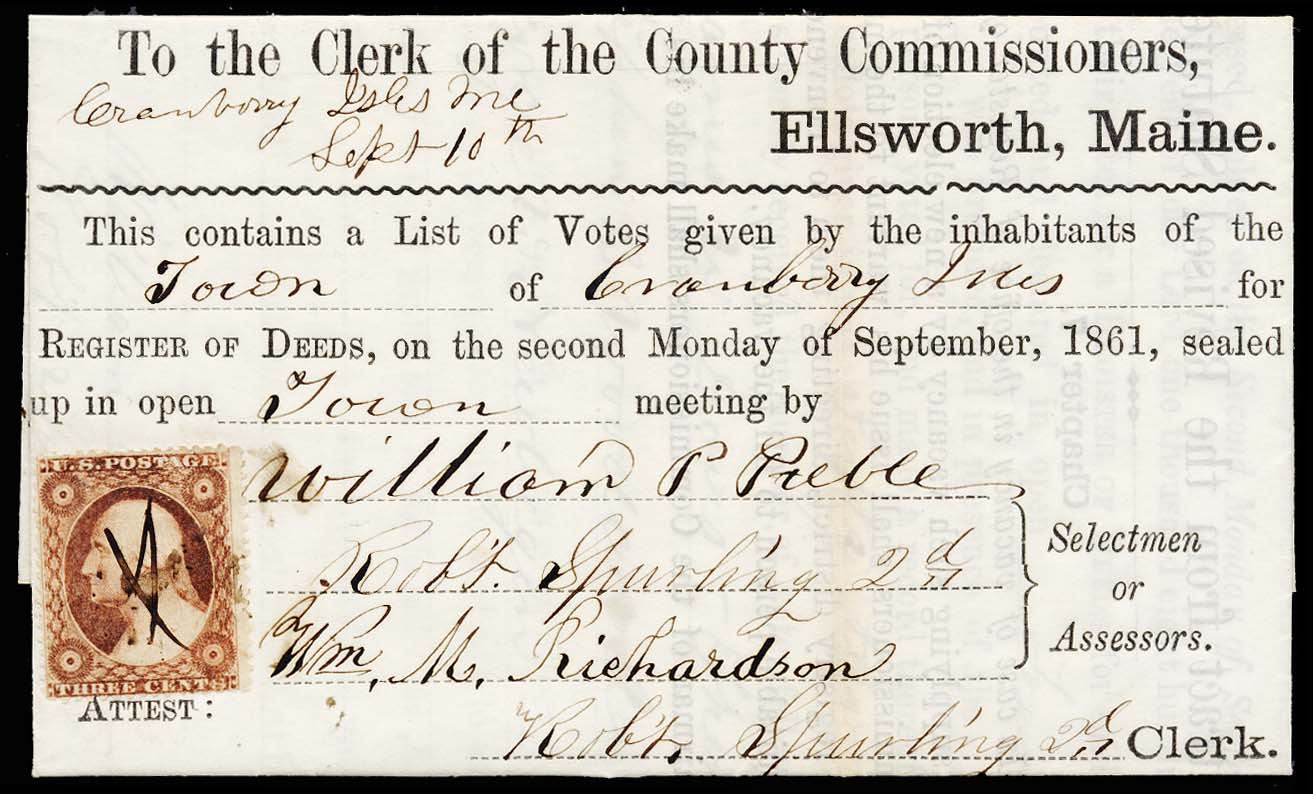 To the Clerk of the County Commissioners,
Cranberry Isles Me
Sept 10th
Ellsworth, Maine.
This contains a List of Votes given by the inhabitants of the
Town of Cranberry Isles for
REGISTER OF DEEDS, on the second Monday of September, 1861, sealed
up in open Town meeting by
U.S. POSTAGE
THREE CENTS
William P Preble
Robt. Spurling 2d
Wm. M. Richardson
Selectmen
or
Assessors.
ATTEST:
Robt. Spurling 2d Clerk.